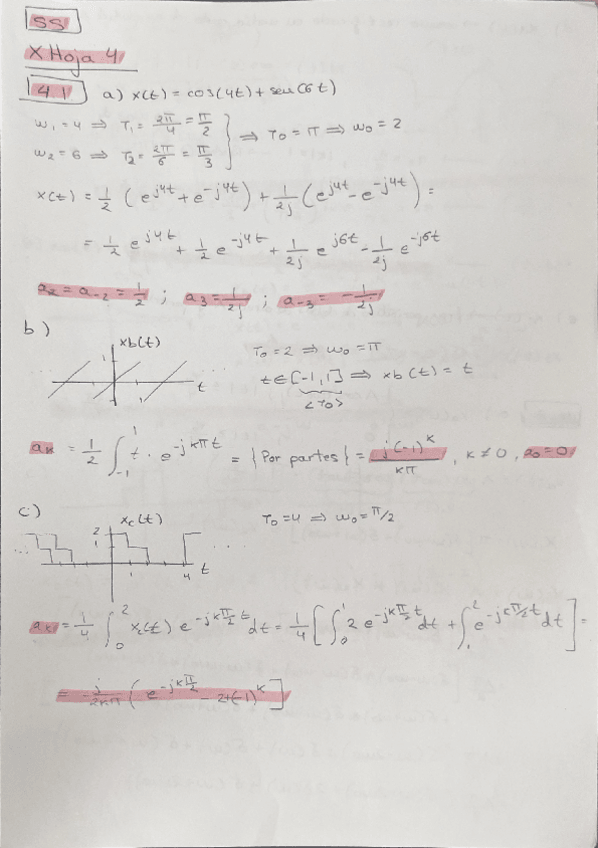 SS
X Hoja 4
4.1 a) x(t) = cos(4t) + sen(6t)
w₁ = 4 ⇒ T₁ = 2π/4 = π/2
w₂ = 6 ⇒ T₂ = 2π/6 = π/3 } ⇒ T₀ = π ⇒ w₀ = 2
x(t) = 1/2 (e^{j4t} + e^{-j4t}) + 1/2j (e^{j4t} - e^{-j4t}) =
= 1/2 e^{j4t} + 1/2 e^{-j4t} + 1/2j e^{j6t} - 1/2j e^{-j6t}
a₂ = a₋₂ = 1/2 ; a₃ = 1/2j ; a₋₃ = -1/2j
b)
xb(t) T₀ = 2 ⇒ w₀ = π
1 t 1 t ∈ [-1,1] ⇒ xb(t) = t
<T₀>
aₖ = 1/2 ∫₋₁¹ t · e^{-jkπt} = {Por partes} = j(-1)^k / kπ , k ≠ 0 , a₀ = 0
c)
xc(t) T₀ = 4 ⇒ w₀ = π/2
2
1
... 1 4 t ...
aₖ = 1/4 ∫₀² xc(t) e^{-jkπ/2 t} dt = 1/4 [∫₀¹ 2 e^{-jkπ/2 t} dt + ∫₁² e^{-jkπ/2 t} dt] =
= -j/2kπ (e^{-jkπ/2} - 2+(-1)^k]